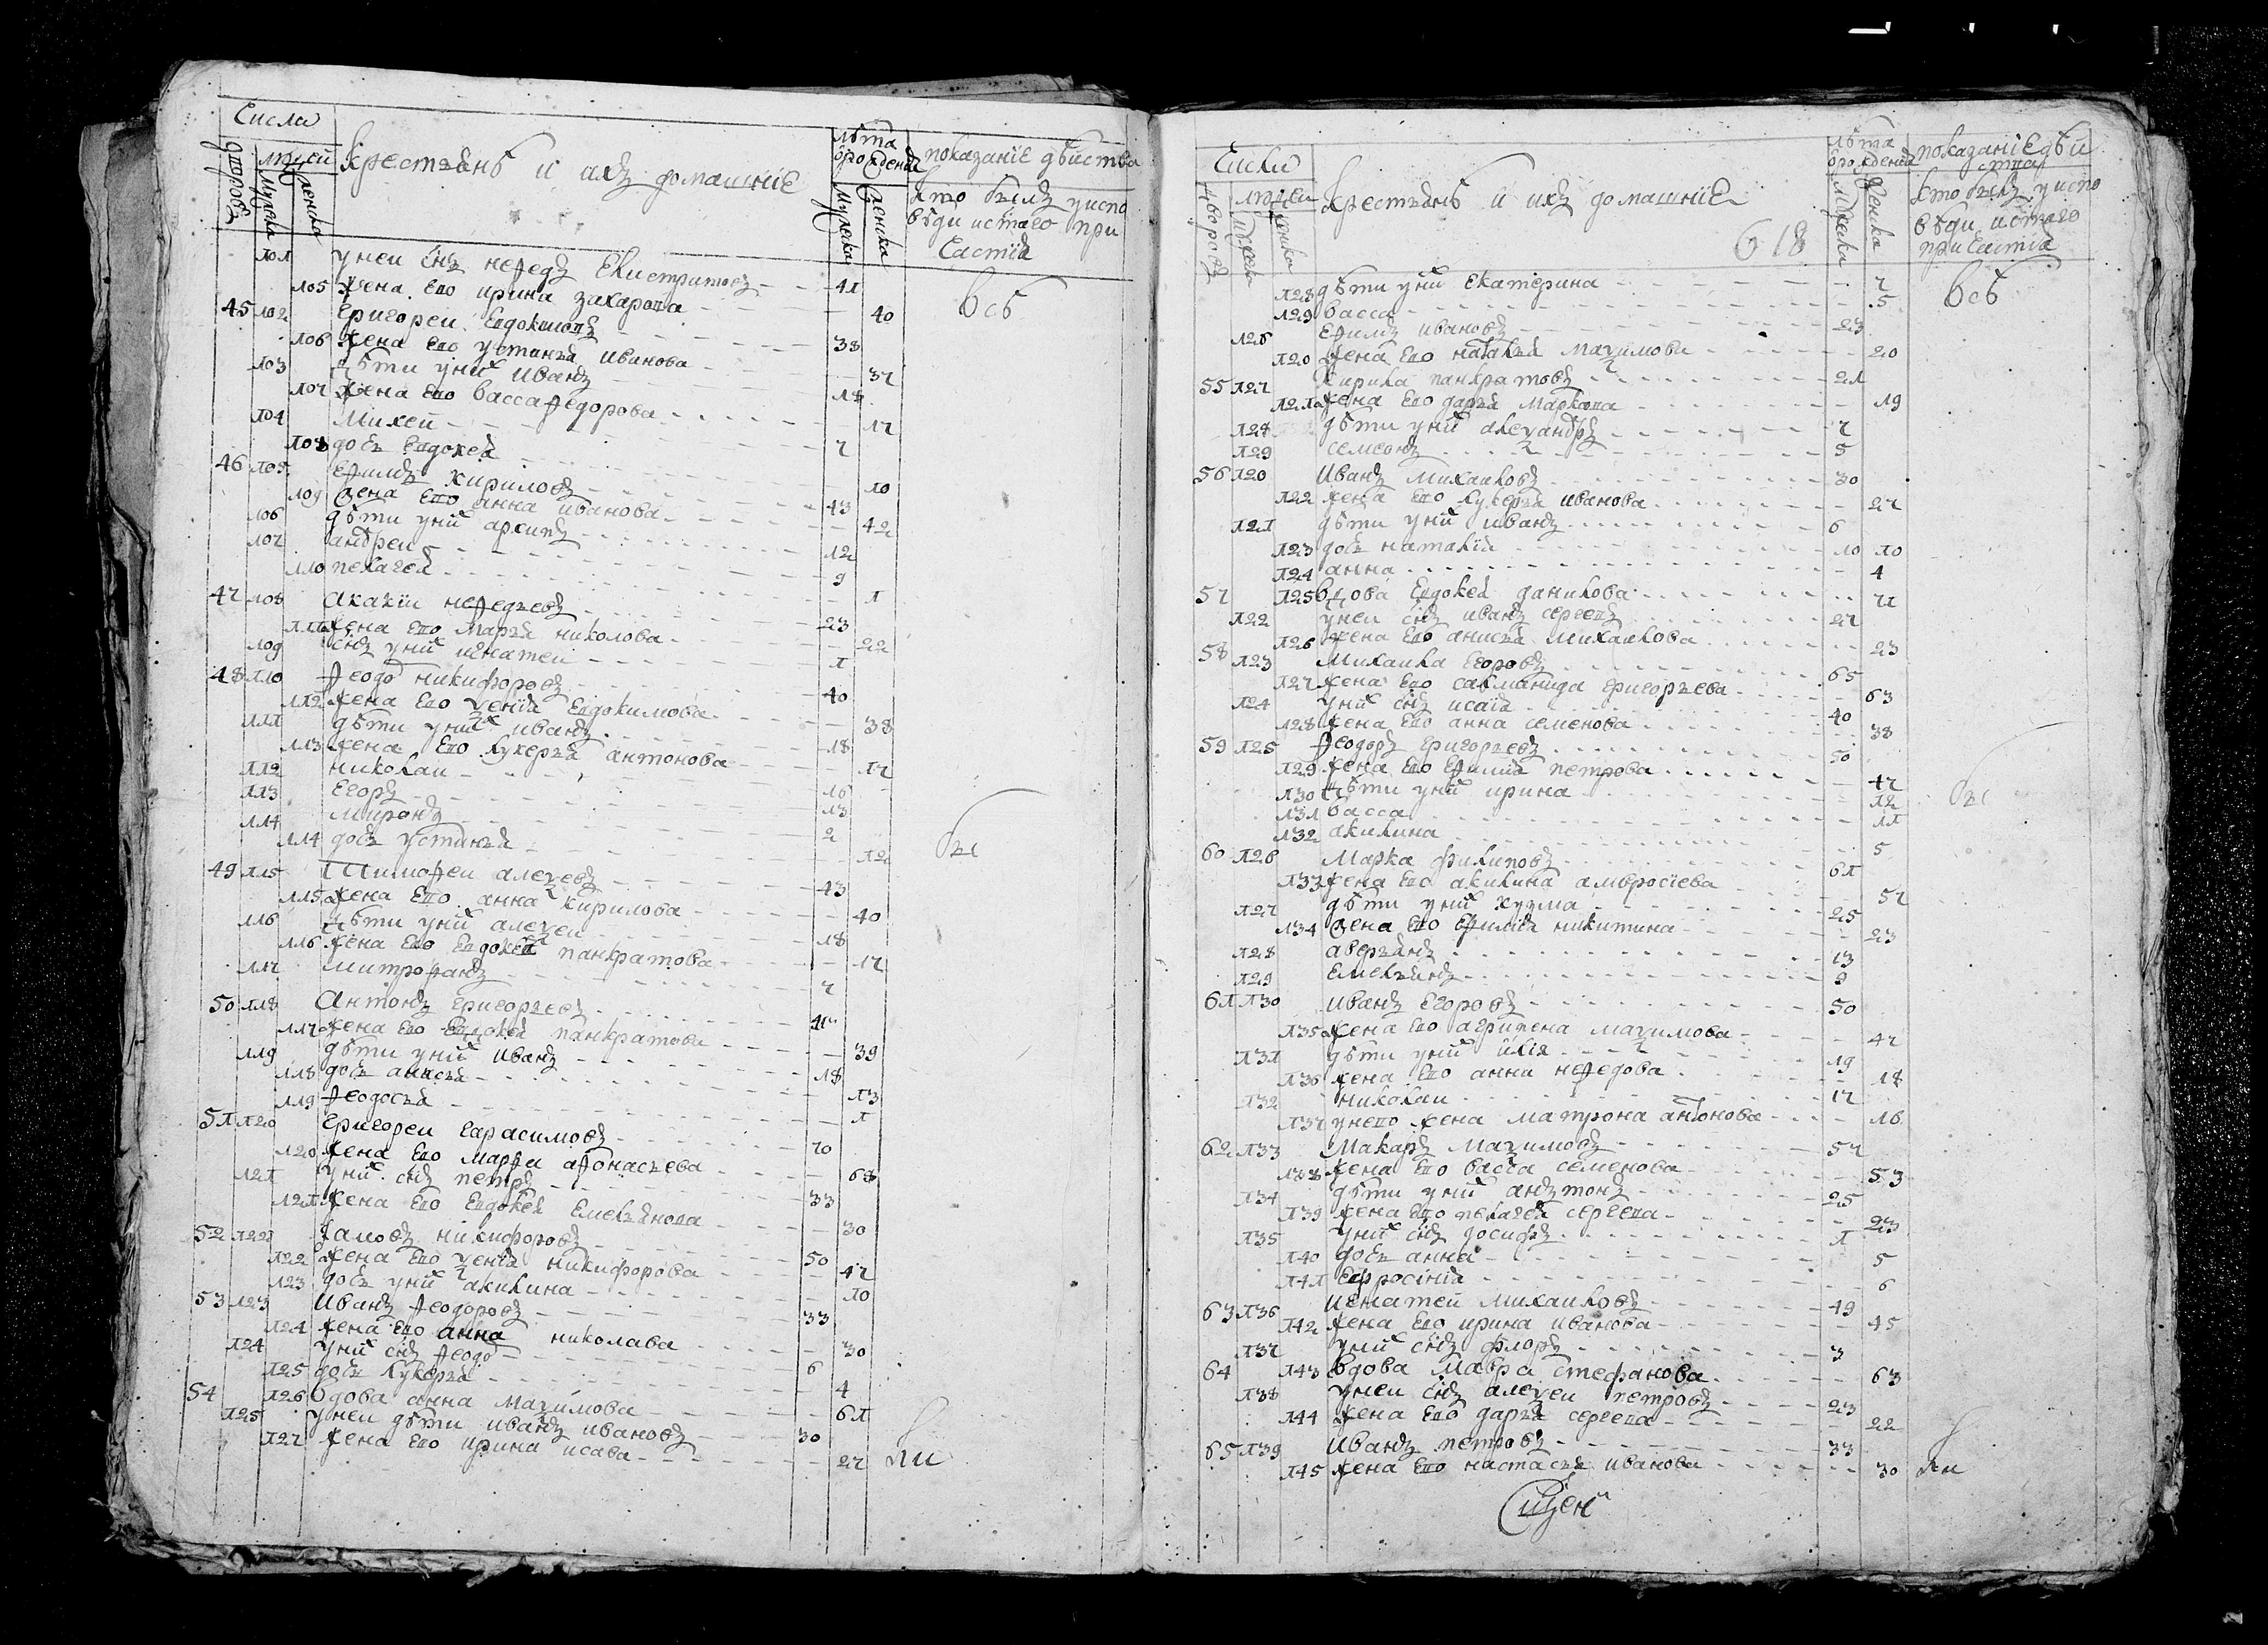 Числа
дворовъ
людей
мужска
женска
Крестьянъ и ихъ домашнiе
лѣта
ѿрожденiя
мужска
женска
показанiе дѣиства
кто былъ у испо
вѣди и с̃таго при
частiя
101 у неи с̃нъ неѳедъ Евистратовъ 41
105 жена Его ирина захарова 40
45 102 Григореи Евдокимовъ 38
106 жена Его устинья иванова 37
103 дѣти у них иванъ 18
107 жена Его васса ѳедорова 17
104 Михеи 7
108 дочь Евдокея 10
46 105 Еѳимъ кириловъ 43
109 жена Его анна иванова 42
106 дѣти у них архипъ 12
107 андреи 9
110 пелагея 1
47 108 Акакiи неѳедьевъ 23
111 жена Его Марья николова 22
109 с̃нъ у них игнатеи 1
48 110 ѳеодо никифоровъ 40
112 жена Его ѯенiя Евдокимова 38
111 дѣти у них иванъ 18
113 жена Его лукерья антонова 17
112 николаи 16
113 Егоръ 13
114 миронъ 2
114 дочь устинья 12
49 115 Тимоѳеи алеѯевъ 43
115 жена Его анна кирилова 40
116 дѣти у них алеѯеи 18
116 жена Его Евдокея панкратова 17
117 митроѳанъ 7
50 118 Антонъ григорьевъ 41
117 жена Его Евдокея панкратова 39
119 дѣти у них иванъ 18
118 дочь анисья 13
119 ѳеодосья 1
51 120 Григореи Гарасимовъ 70
120 жена Его Марѳа аѳонасьева 68
121 у них с̃нъ петръ 33
121 жена Его Евдокея Емельянова 30
52 122 никифоровъ 50
122 жена Его ѯенiя никифорова 47
123 дочь у них акилина 10
53 123 Иванъ ѳеодоровъ 33
124 жена Его анна николава 30
124 у них с̃нъ ѳеодо 6
125 дочь лукерья 4
54 126 Вдова анна Маѯимова 61
125 у неи дѣти иванъ ивановъ 30
127 жена Его ирина исава 27
всѣ
бы
ли
Числа
дворовъ
людеи
мужска
женска
Крестьянъ и ихъ домашнiе
618
лѣта
ѿрожденiя
мужска
женска
показанiе дѣи
ства
кто былъ у испо
вѣди и с̃таго
причастiя
128 дѣти у них Екатерина 7
129 васса 5
126 Еѳимъ ивановъ 23
120 жена Его наталья маѯимова 20
55 127 Кирила панкратовъ 21
121 жена Его дарья Маркова 19
128 дѣти у них алеѯандръ 7
129 семеонъ 5
56 120 Иванъ Михаиловъ 30
122 жена Его лукерья иванова 27
121 дѣти у них иванъ 6
123 дочь наталiя 10 10
124 анна 4
57 125 вдова Евдокея данилова 71
122 у неи с̃нъ иванъ сергеевъ 27
126 жена Его анисья михаилова 23
58 123 Михаила Егоровъ 65
127 жена Его салманида григорьева 63
124 у них с̃нъ исаiя 40
128 жена Его анна семенова 38
59 125 ѳеодоръ григорьевъ 50
129 жена Его Еѳимiя петрова 47
130 дѣти у них ирина 12
131 васса 11
132 акилина 5
60 126 Марка филиповъ 61
133 жена Его акилина амвросiева 57
127 дѣти у них кузма 25
134 жена Его Еѳимiя никитина 23
128 аверьянъ 13
129 Емельянъ 9
61 130 Иванъ Егоровъ 50
135 жена Его агриѳена маѯимова 47
131 дѣти у них илiя 19
136 жена Его анна неѳедова 18
132 николаи 17
137 у него жена матрона антонова 16
62 133 Макаръ Маѯимовъ 57
138 жена Его васса семенова 53
134 дѣти у них анътонъ 25
139 жена Его пелагея сергева 23
135 у них с̃нъ иосифъ 1
140 дочь анна 5
141 Ефросiнiя 6
63 136 Игнатеи Михаиловъ 49
142 жена Его ирина иванова 45
137 у них с̃нъ флоръ 3
64 143 Вдова Мавра Стефанова 63
138 у неи с̃нъ алеѯеи петровъ 23
144 жена Его дарья сергева 22
65 139 Иванъ петровъ 33
145 жена Его настасья иванова 30
всѣ
бы
ли
Сщен